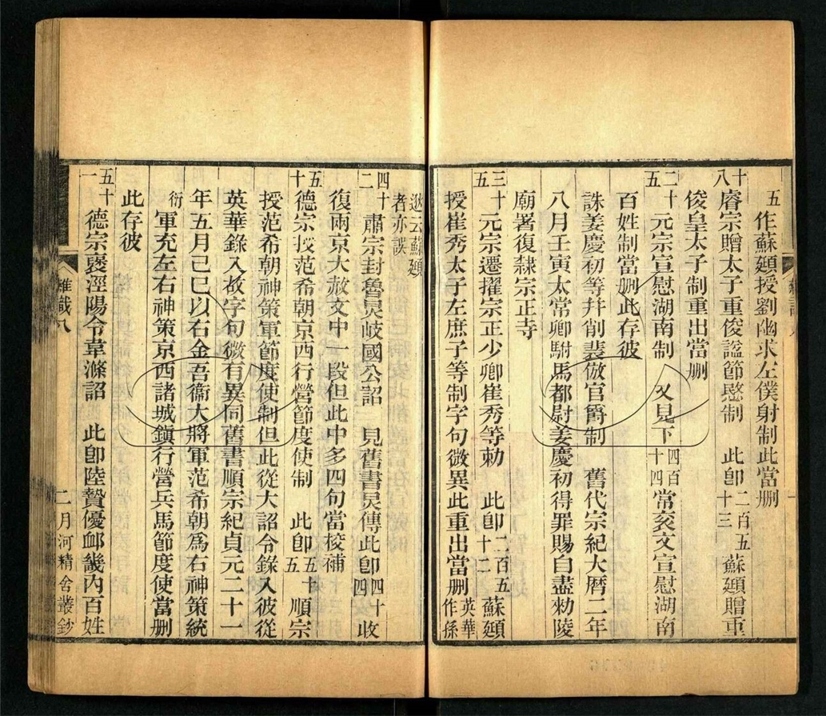 五作蘇頲授劉幽求左僕射制此當刪
十八睿宗贈太子重俊諡節愍制　此卽二百五十三蘇頲贈重
俊皇太子制重出當刪
二十五元宗宣慰湖南制　又見下四百十四常袞文宣慰湖南
百姓制當刪此存彼
誅姜慶初等幷削裴倣官爵制　舊代宗紀大曆二年
八月壬寅太常卿駙馬都尉姜慶初得罪賜自盡勅陵
廟署復隸宗正寺
三十五元宗遷擢宗正少卿崔秀等勅　此卽二百五十二蘇頲
授崔秀太子左庶子等制字句微異此重出當刪英華作孫
逖云蘇頲者亦誤
四十二肅宗封魯炅岐國公詔　見舊書炅傳此卽四十四收
復兩京大赦文中一段但此中多四句當校補
五十德宗授范希朝京西行營節度使制　此卽五十五順宗
授范希朝神策軍節度使制但此從大詔令錄入彼從
英華錄入故字句微有異同舊書順宗紀貞元二十一
年五月己巳以右金吾衞大將軍范希朝爲右神策統
衍軍充左右神策京西諸城鎭行營兵馬節度使當刪
此存彼
五十一德宗褒涇陽令韋滌詔　此卽陸贄優卹畿內百姓
雜識八
二
月河精舍叢鈔